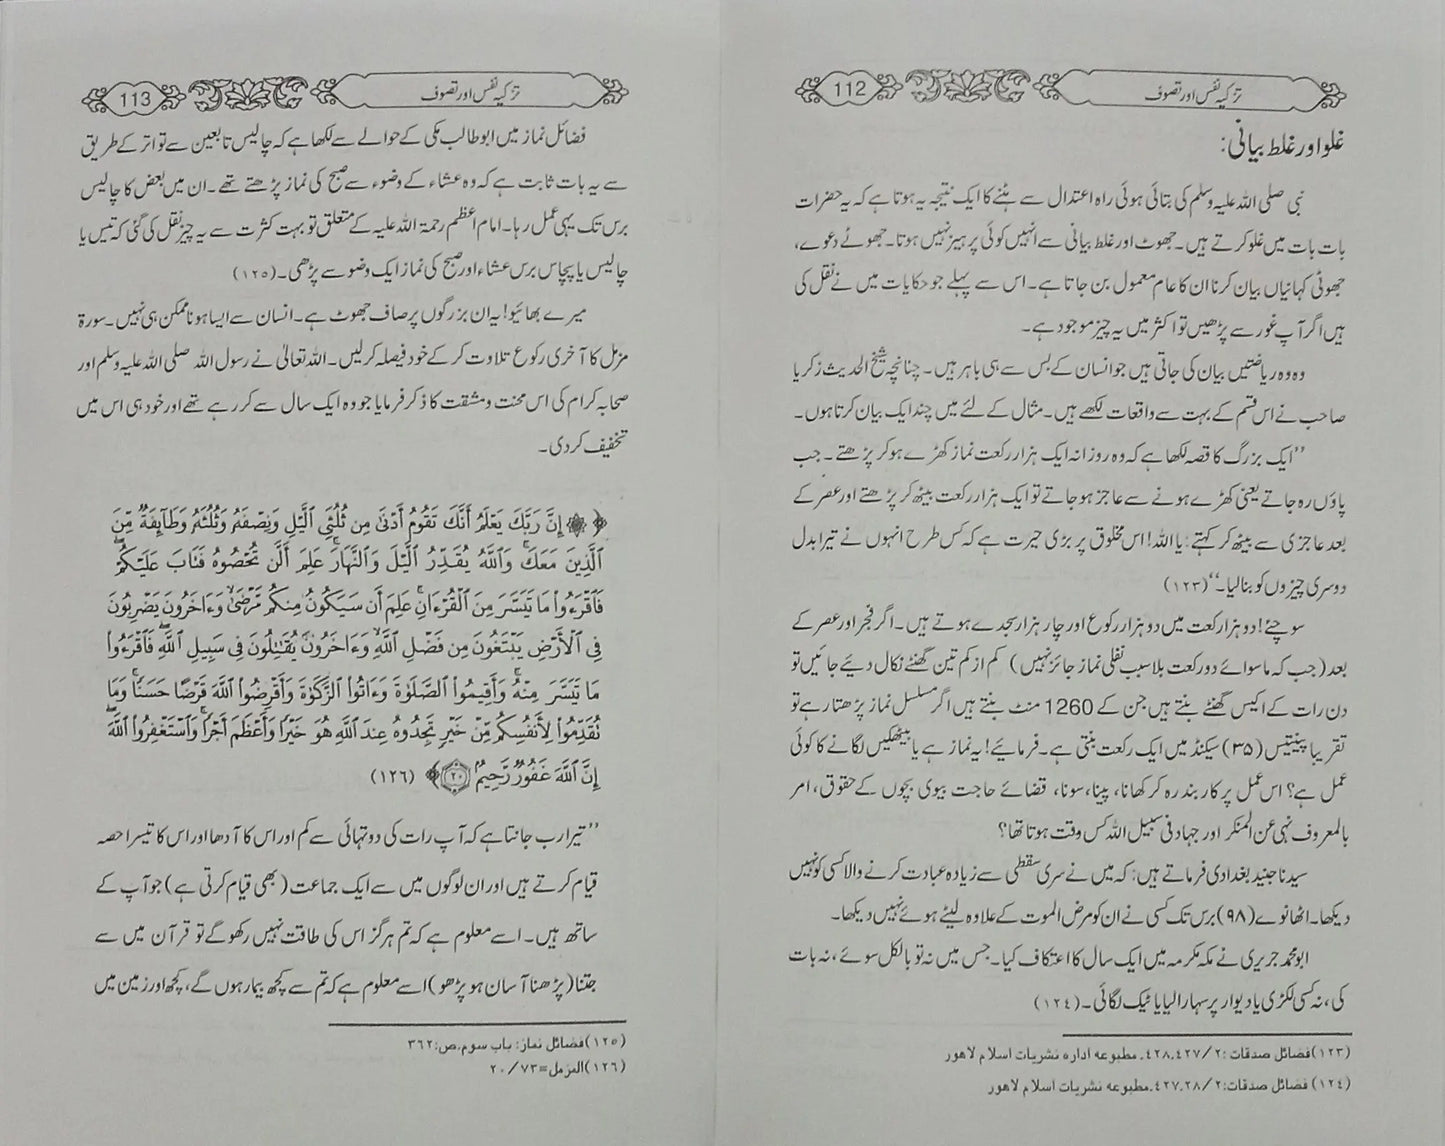 112
تزکیہ نفس اور تصوف
غلو اور غلط بیانی:
نبی صلی اللہ علیہ وسلم کی بتائی ہوئی راہ اعتدال سے ہٹنے کا ایک نتیجہ یہ ہوتا ہے کہ یہ حضرات
بات بات میں غلو کرتے ہیں۔ جھوٹ اور غلط بیانی سے انہیں کوئی پرہیز نہیں ہوتا۔ جھوٹے دعوے،
جھوٹی کہانیاں بیان کرنا ان کا عام معمول بن جاتا ہے۔ اس سے پہلے جو حکایات میں نے نقل کی
ہیں اگر آپ غور سے پڑھیں تو اکثر میں یہ چیز موجود ہے۔
وہ وہ ریاضتیں بیان کی جاتی ہیں جو انسان کے بس سے ہی باہر ہیں۔ چنانچہ شیخ الحدیث زکریا
صاحب نے اس قسم کے بہت سے واقعات لکھے ہیں۔ مثال کے لئے میں چند ایک بیان کرتا ہوں۔
’’ایک بزرگ کا قصہ لکھا ہے کہ وہ روزانہ ایک ہزار رکعت نماز کھڑے ہو کر پڑھتے۔ جب
پاؤں رہ جاتے یعنی کھڑے ہونے سے عاجز ہو جاتے تو ایک ہزار رکعت بیٹھ کر پڑھتے اور عصر کے
بعد عاجزی سے بیٹھ کر کہتے: یا اللہ! اس مخلوق پر بڑی حیرت ہے کہ کس طرح انہوں نے تیرا بدل
دوسری چیزوں کو بنالیا۔‘‘ (۱۲۳)
سوچئے! دو ہزار رکعت میں دو ہزار رکوع اور چار ہزار سجدے ہوتے ہیں۔ اگر فجر اور عصر کے
بعد (جب کہ ماسوائے دو رکعت بلا سبب نفلی نماز جائز نہیں) کم از کم تین گھنٹے نکال دیئے جائیں تو
دن رات کے اکیس گھنٹے بنتے ہیں جن کے 1260 منٹ بنتے ہیں اگر مسلسل نماز پڑھتا رہے تو
تقریبا پینتیس (۳۵) سیکنڈ میں ایک رکعت بنتی ہے۔ فرمائیے! یہ نماز ہے یا بیٹھکیں لگانے کا کوئی
عمل ہے؟ اس عمل پر کار بند رہ کر کھانا، پینا، سونا، قضائے حاجت بیوی بچوں کے حقوق، امر
بالمعروف نہی عن المنکر اور جہاد فی سبیل اللہ کس وقت ہوتا تھا؟
سیدنا جنید بغدادی فرماتے ہیں: کہ میں نے سری سقطی سے زیادہ عبادت کرنے والا کسی کو نہیں
دیکھا۔ اٹھانوے (۹۸) برس تک کسی نے ان کو مرض الموت کے علاوہ لیٹے ہوئے نہیں دیکھا۔
ابو محمد جریری نے مکہ مکرمہ میں ایک سال کا اعتکاف کیا۔ جس میں نہ تو بالکل سوئے، نہ بات
کی، نہ کسی لکڑی یا دیوار پر سہارا لیا یا ٹیک لگائی۔ (۱۲٤)
(۱۲۳) فضائل صدقات: ۲/ ۴۲۸،۴۲۷۔ مطبوعہ ادارہ نشریات اسلام لاھور
(۱۲٤) فضائل صدقات: ۲/ ۴۲۷،۲۸۔ مطبوعہ نشریات اسلام لاھور
113
تزکیہ نفس اور تصوف
فضائل نماز میں ابو طالب مکی کے حوالے سے لکھا ہے کہ چالیس تابعین سے تواتر کے طریق
سے یہ بات ثابت ہے کہ وہ عشاء کے وضوء سے صبح کی نماز پڑھتے تھے۔ ان میں بعض کا چالیس
برس تک یہی عمل رہا۔ امام اعظم رحمۃ اللہ علیہ کے متعلق تو بہت کثرت سے یہ چیز نقل کی گئی کہ تیس یا
چالیس یا پچاس برس عشاء اور صبح کی نماز ایک وضو سے پڑھی۔ (۱۲۵)
میرے بھائیو! یہ ان بزرگوں پر صاف جھوٹ ہے۔ انسان سے ایسا ہونا ممکن ہی نہیں۔ سورة
مزمل کا آخری رکوع تلاوت کر کے خود فیصلہ کر لیں۔ اللہ تعالیٰ نے رسول اللہ صلی اللہ علیہ وسلم اور
صحابہ کرام کی اس محنت و مشقت کا ذکر فرمایا جو وہ ایک سال سے کر رہے تھے اور خود ہی اس میں
تخفیف کر دی۔
﴿ ۞ إِنَّ رَبَّكَ يَعْلَمُ أَنَّكَ تَقُومُ أَدْنَىٰ مِن ثُلُثَيِ ٱلَّيْلِ وَنِصْفَهُۥ وَثُلُثَهُۥ وَطَآئِفَةٌ مِّنَ
ٱلَّذِينَ مَعَكَ ۚ وَٱللَّهُ يُقَدِّرُ ٱلَّيْلَ وَٱلنَّهَارَ ۚ عَلِمَ أَلَّن تُحْصُوهُ فَتَابَ عَلَيْكُمْ ۖ
فَٱقْرَءُوا۟ مَا تَيَسَّرَ مِنَ ٱلْقُرْءَانِ ۚ عَلِمَ أَن سَيَكُونُ مِنكُم مَّرْضَىٰ ۙ وَءَاخَرُونَ يَضْرِبُونَ
فِى ٱلْأَرْضِ يَبْتَغُونَ مِن فَضْلِ ٱللَّهِ ۙ وَءَاخَرُونَ يُقَٰتِلُونَ فِى سَبِيلِ ٱللَّهِ ۖ فَٱقْرَءُوا۟
مَا تَيَسَّرَ مِنْهُ ۚ وَأَقِيمُوا۟ ٱلصَّلَوٰةَ وَءَاتُوا۟ ٱلزَّكَوٰةَ وَأَقْرِضُوا۟ ٱللَّهَ قَرْضًا حَسَنًا ۚ وَمَا
تُقَدِّمُوا۟ لِأَنفُسِكُم مِّنْ خَيْرٍ تَجِدُوهُ عِندَ ٱللَّهِ هُوَ خَيْرًا وَأَعْظَمَ أَجْرًا ۚ وَٱسْتَغْفِرُوا۟ ٱللَّهَ ۖ
إِنَّ ٱللَّهَ غَفُورٌ رَّحِيمٌۢ ۝٢٠ ﴾ (۱۲٦)
’’تیرا رب جانتا ہے کہ آپ رات کی دو تہائی سے کم اور اس کا آدھا اور اس کا تیسرا حصہ
قیام کرتے ہیں اور ان لوگوں میں سے ایک جماعت (بھی قیام کرتی ہے) جو آپ کے
ساتھ ہیں۔ اسے معلوم ہے کہ تم ہرگز اس کی طاقت نہیں رکھو گے تو قرآن میں سے
جتنا (پڑھنا آسان ہو پڑھو) اسے معلوم ہے کہ تم سے کچھ بیمار ہوں گے، کچھ اور زمین میں
(۱۲۵) فضائل نماز: باب سوم، ص: ۳٦۲
(۱۲٦) المزمل= ۷۳/ ۲۰